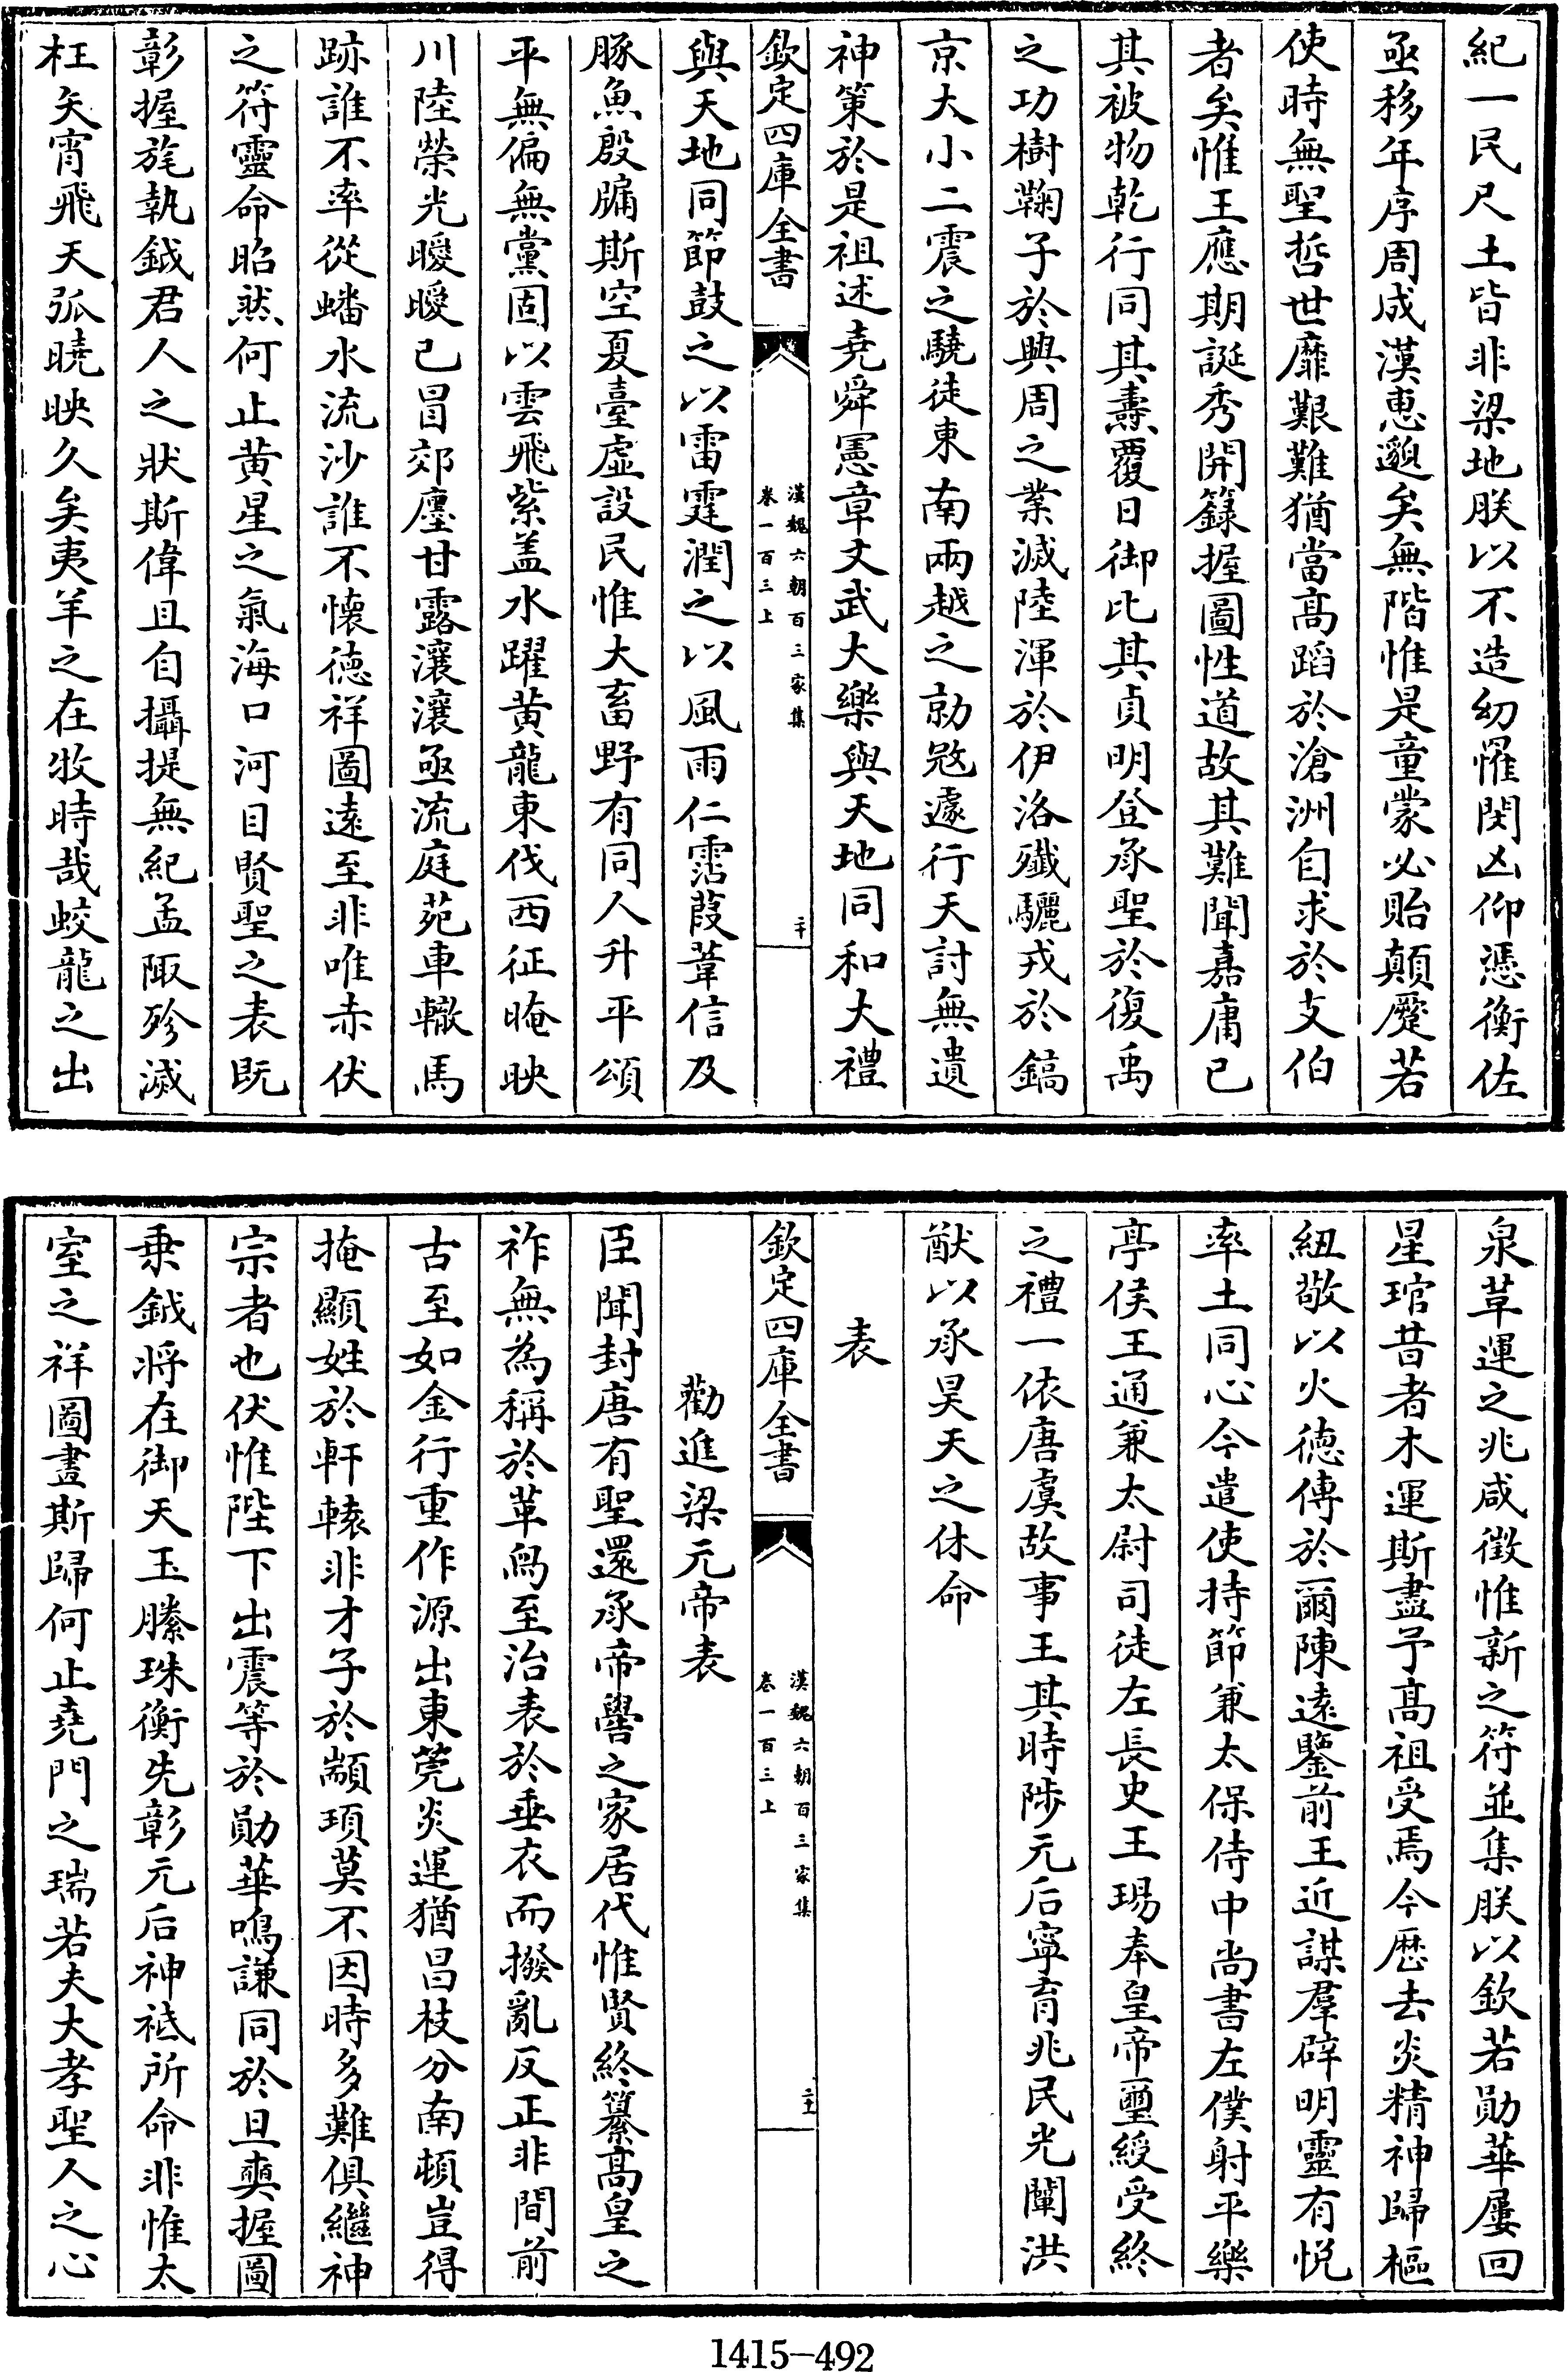 紀一民尺土皆非梁地朕以不造幼罹閔凶仰憑衡佐
亟移年序周成漢惠邈矣無階惟是童蒙必貽顛蹷若
使時無聖哲世靡艱難猶當髙蹈於滄洲自求於支伯
者矣惟王應期誕秀開籙握圖性道故其難聞嘉庸已
其被物乾行同其燾覆日御比其貞明登承聖於復禹
之功樹鞠子於興周之業滅陸渾於伊洛殲驪戎於鎬
京大小二震之驍徒東南兩越之勍冦遽行天討無遺
神策於是祖述堯舜憲章文武大樂與天地同和大禮
欽定四庫全書
漢魏六朝百三家集
卷一百三上
二十
與天地同節鼓之以雷霆潤之以風雨仁霑葭葦信及
豚魚殷牖斯空夏臺虛設民惟大畜野有同人升平頌
平無偏無黨固以雲飛紫盖水躍黄龍東伐西征晻映
川陸榮光曖曖已冒郊廛甘露瀼瀼亟流庭苑車轍馬
跡誰不率從蟠水流沙誰不懷徳祥圖遠至非唯赤伏
之符靈命昭然何止黄星之氣海口河目賢聖之表既
彰握旄執鉞君人之狀斯偉且自攝提無紀孟陬殄滅
枉矢宵飛天弧曉映久矣夷羊之在牧時哉蛟龍之出
泉草運之兆咸徴惟新之符並集朕以欽若勛華屢回
星琯昔者木運斯盡予髙祖受焉今歴去炎精神歸樞
紐敬以火徳傳於爾陳遠鑒前王近謀羣辟明靈有悦
率土同心今遣使持節兼太保侍中尚書左僕射平樂
亭侯王通兼太尉司徒左長史王瑒奉皇帝璽綬受終
之禮一依唐虞故事王其時陟元后寧育兆民光闡洪
猷以承昊天之休命
表
欽定四庫全書
漢魏六朝百三家集
卷一百三上
二十一
勸進梁元帝表
臣聞封唐有聖還承帝嚳之家居代惟賢終纂髙皇之
祚無為稱於革舄至治表於垂衣而撥亂反正非間前
古至如金行重作源出東莞炎運猶昌枝分南頓豈得
掩顯姓於軒轅非才子於顓頊莫不因時多難俱繼神
宗者也伏惟陛下出震等於勛華鳴謙同於旦奭握圖
秉鉞將在御天玉縢珠衡先彰元后神祗所命非惟太
室之祥圖畫斯歸何止堯門之瑞若夫大孝聖人之心
1415-492